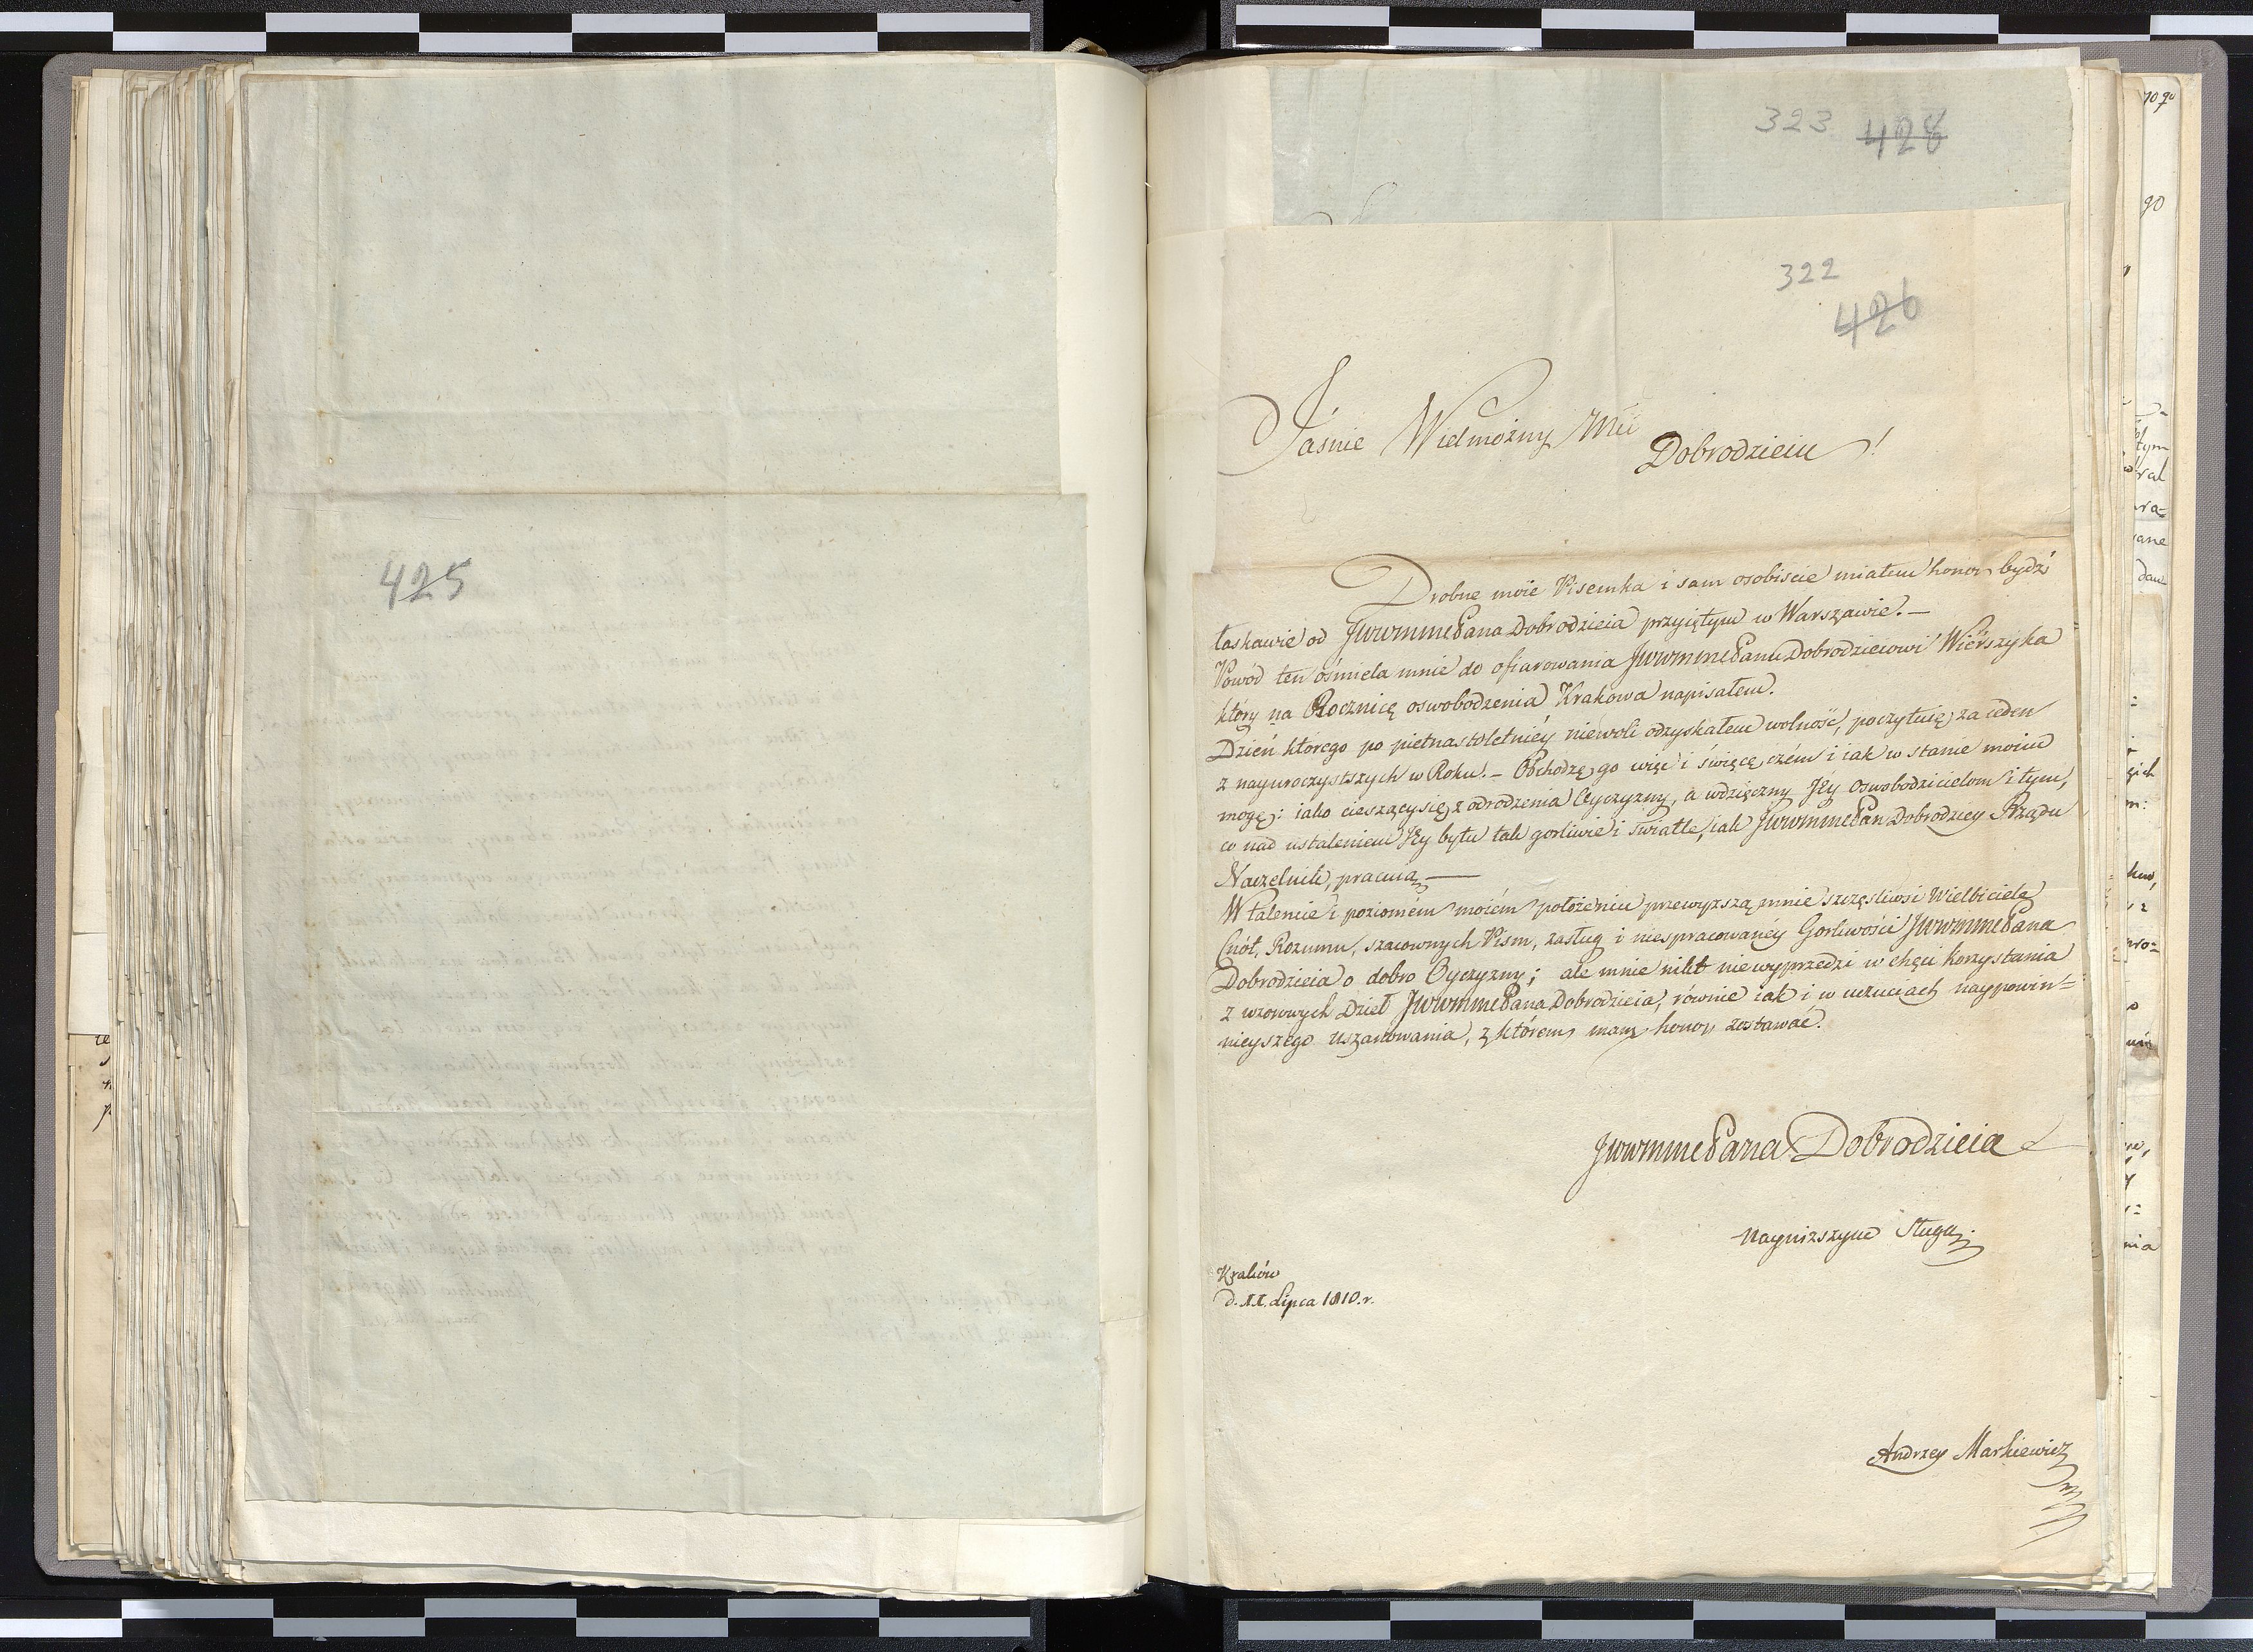 425
323 428
322
426
Jaśnie Wielmożny Mci
Dobrodzieiu!
Drobne moie Pisemka i sam osobiscie miałem honor bydź
łaskawie od JWWmmcPana Dobrodzieia przyiętym w Warszawie.—
Powód ten ośmiela mnie do ofiarowania JWWmmcPanu Dobrodzieiowi Wierszyka
który na Rocznicę oswobodzenia Krakowa napisałem.
Dzień którego po pietnastoletniéy niewoli odzyskałem wolność, poczytuię za ieden
z nayuroczystszych w Roku.— Obchodzę go więc i święcę, czém i iak w stanie moim
mogę: iako cieszący się z odrodzenia Oyczyzny, a wdzięczny Jéy Oswobodzicielom i tym,
co nad ustaleniem Jéy bytu tak gorliwie i światle, iak JWWmmcPan Dobrodziey Rządu
Naczelnik, pracuią.—
W talencie i poziomém moiém położeniu przewyższą mnie szczęśliwsi Wielbiciele
Cnót, Rozumu, szacownych Pism, zasług i niespracowanéy Gorliwości JWWmmcPana
Dobrodzieia o dobro Oyczyzny; ale mnie nikt niewyprzedzi w chęci korzystania
z wzorowych Dzieł JWWmmcPana Dobrodzieia, równie iak i w uczuciach naypowin=
nieyszego uszanowania, z którem mam honor zostawać.
JWWmmcPana Dobrodzieia
Nayniższym Sługą.
Kraków
d. 11. Lipca 1810. r.
Andrzey Markiewicz